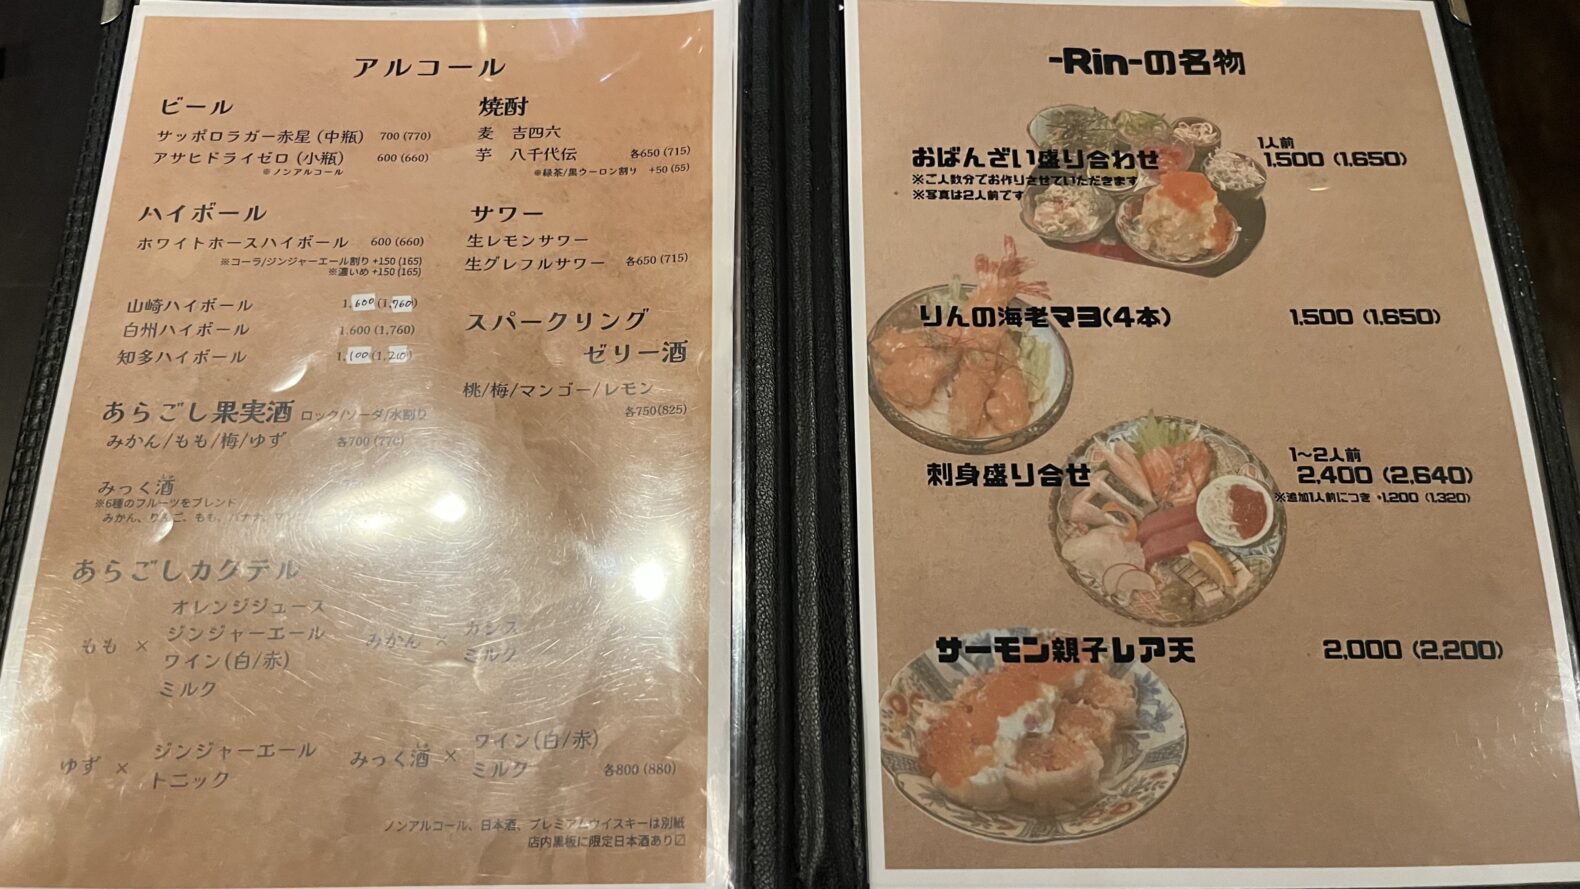 アルコール
ビール
サッポロラガー赤星 (中瓶) 700 (770)
アサヒドライゼロ (小瓶) 600 (660)
※ノンアルコール
ハイボール
ホワイトホースハイボール 600 (660)
※コーラ/ジンジャーエール割り +150 (165)
※濃いめ +150 (165)
山崎ハイボール 1,600 (1,760)
白州ハイボール 1,600 (1,760)
知多ハイボール 1,100 (1,210)
あらごし果実酒 ロック/ソーダ/水割り
みかん/もも/梅/ゆず 各700 (770)
みっく酒
※6種のフルーツをブレンド
みかん、りんご、もも、バナナ、
あらごしカクテル
もも × オレンジジュース
ジンジャーエール
ワイン(白/赤)
ミルク
みかん × カシス
ミルク
ゆず × ジンジャーエール
トニック
みっく酒 × ワイン(白/赤)
ミルク 各800 (880)
焼酎
麦 吉四六
芋 八千代伝 各650 (715)
※緑茶/黒ウーロン割り +50 (55)
サワー
生レモンサワー
生グレフルサワー 各650 (715)
スパークリング
ゼリー酒
桃/梅/マンゴー/レモン
各750(825)
ノンアルコール、日本酒、プレミアムウイスキーは別紙
店内黒板に限定日本酒あり〼
-Rin-の名物
おばんざい盛り合わせ 1人前 1,500 (1,650)
※ご人数分でお作りさせていただきます
※写真は2人前です
りんの海老マヨ(4本) 1,500 (1,650)
刺身盛り合せ 1〜2人前 2,400 (2,640)
※追加1人前につき +1,200 (1,320)
サーモン親子レア天 2,000 (2,200)